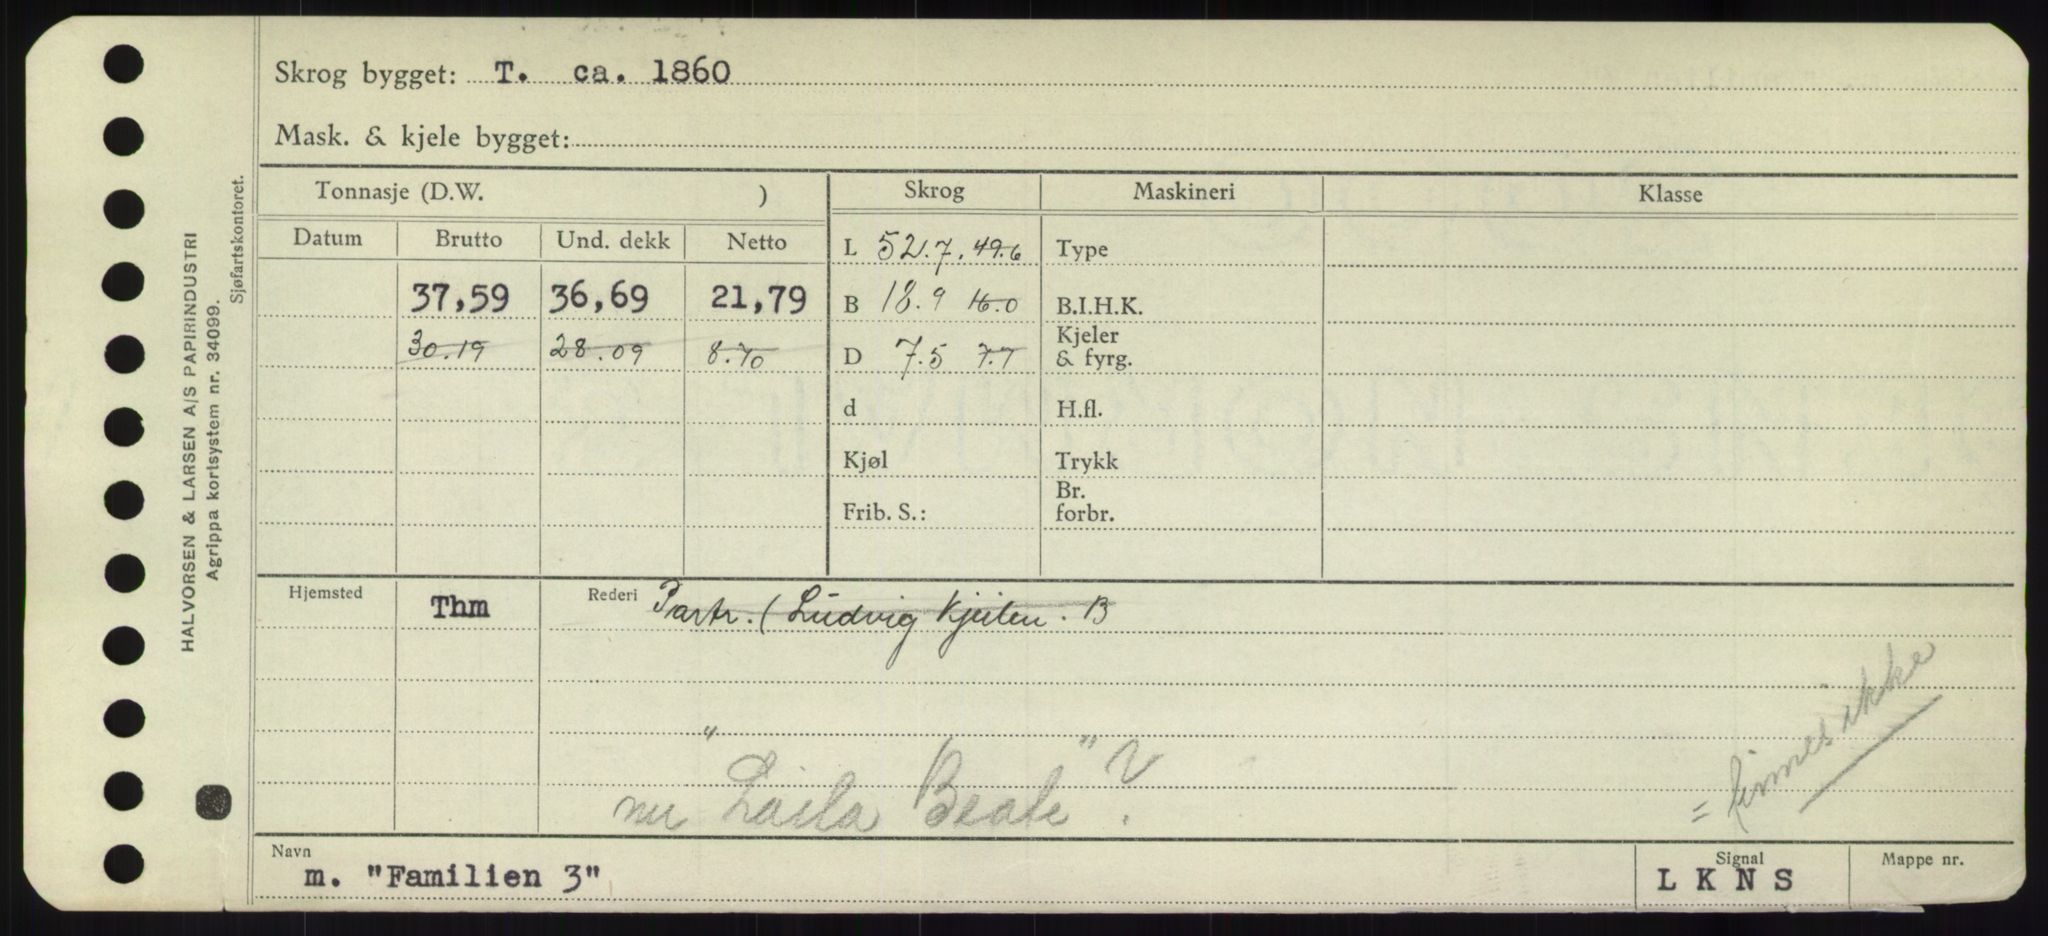 Skrog bygget: T. ca. 1860
Mask. & kjele bygget:
Tonnasje (D.W. ) Skrog Maskineri Klasse
Datum Brutto Und. dekk Netto
L 52.7. 49.6 Type
37,59 36,69 21,79 B 18.9 16.0 B.I.H.K.
30.19 28.09 8.70 D 7.5 7.7 Kjeler & fyrg.
d H.fl.
Kjøl Trykk
Frib. S.: Br. forbr.
Hjemsted Thm Rederi Partr. (Ludvig Kjeilen. B
nu "Laila Beate"?
= finnes ikke
Navn m. "Familien 3" Signal L K N S Mappe nr.
HALVORSEN & LARSEN A/S PAPIRINDUSTRI
Agrippa kortsystem nr. 34099.
Sjøfartskontoret.